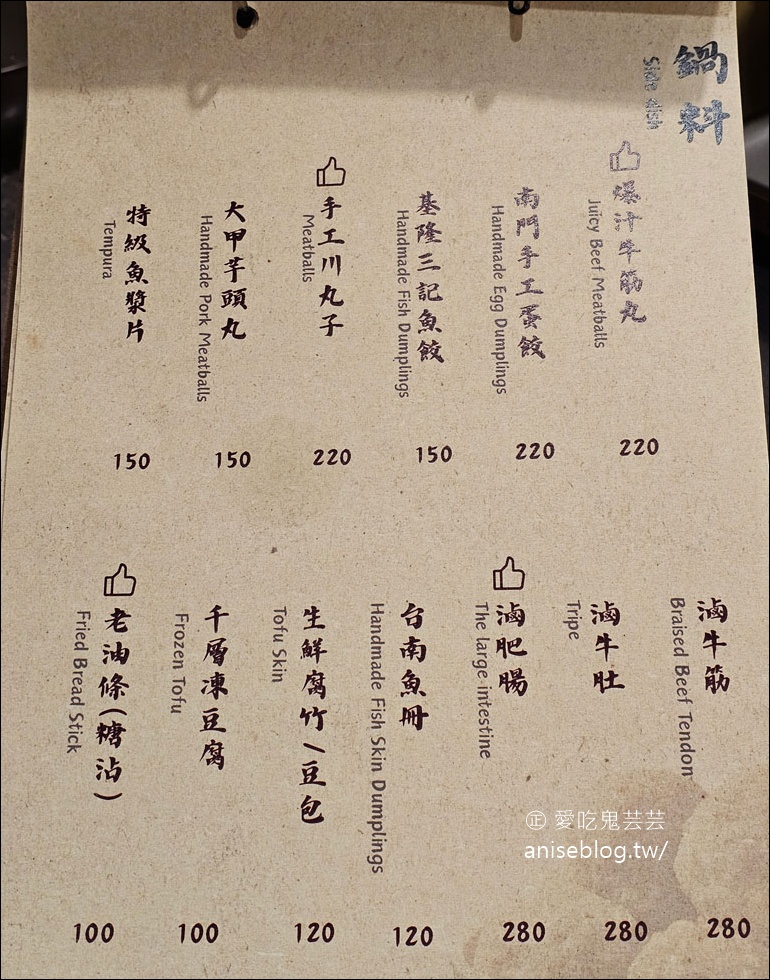 鍋料
Side dish
爆汁牛筋丸
Juicy Beef Meatballs
220
南門手工蛋餃
Handmade Egg Dumplings
220
基隆三記魚餃
Handmade Fish Dumplings
150
手工川丸子
Meatballs
220
大甲芋頭丸
Handmade Pork Meatballs
150
特級魚漿片
Tempura
150
滷牛筋
Braised Beef Tendon
280
滷牛肚
Tripe
280
滷肥腸
The large intestine
280
台南魚冊
Handmade Fish Skin Dumplings
120
生鮮腐竹/豆包
Tofu Skin
120
千層凍豆腐
Frozen Tofu
100
老油條(糖沾)
Fried Bread Stick
100
正 愛吃鬼芸芸
aniseblog.tw/